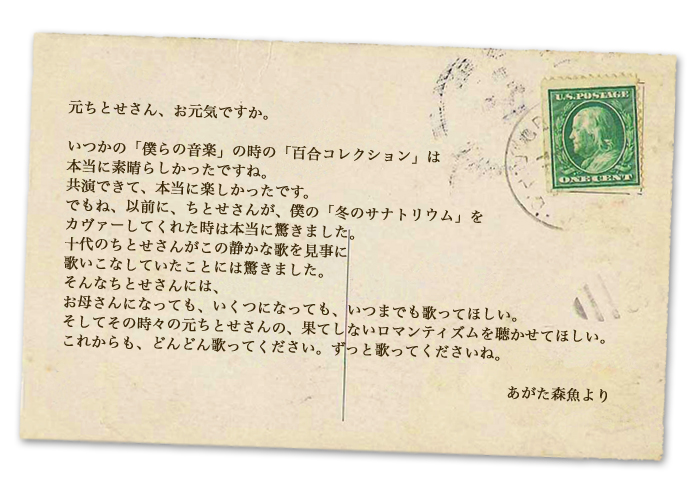 元ちとせさん、お元気ですか。
いつかの「僕らの音楽」の時の「百合コレクション」は
本当に素晴らしかったですね。
共演できて、本当に楽しかったです。
でもね、以前に、ちとせさんが、僕の「冬のサナトリウム」を
カヴァーしてくれた時は本当に驚きました。
十代のちとせさんがこの静かな歌を見事に
歌いこなしていたことには驚きました。
そんなちとせさんには、
お母さんになっても、いくつになっても、いつまでも歌ってほしい。
そしてその時々の元ちとせさんの、果てしないロマンティズムを聴かせてほしい。
これからも、どんどん歌ってください。ずっと歌ってくださいね。
あがた森魚より
U.S. POSTAGE
ONE CENT